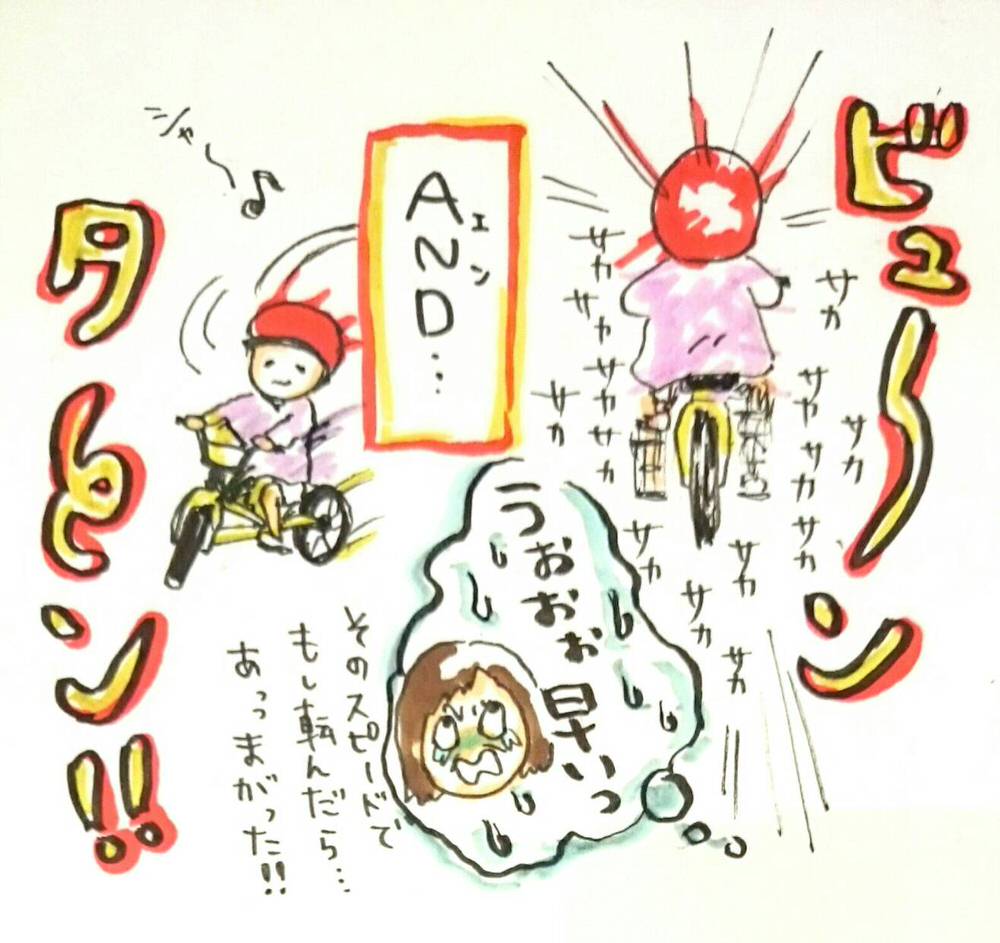 ビューン
サカ
サカ
サカサカサカ
サカ
サカ
サカ
サカ
サカ
サカ
サカサカ
サカ
AND…
エン
うおおぉ早いっ
シャー♪
そのスピードで
もし転んだら…
あっまがった!!
ターン!!